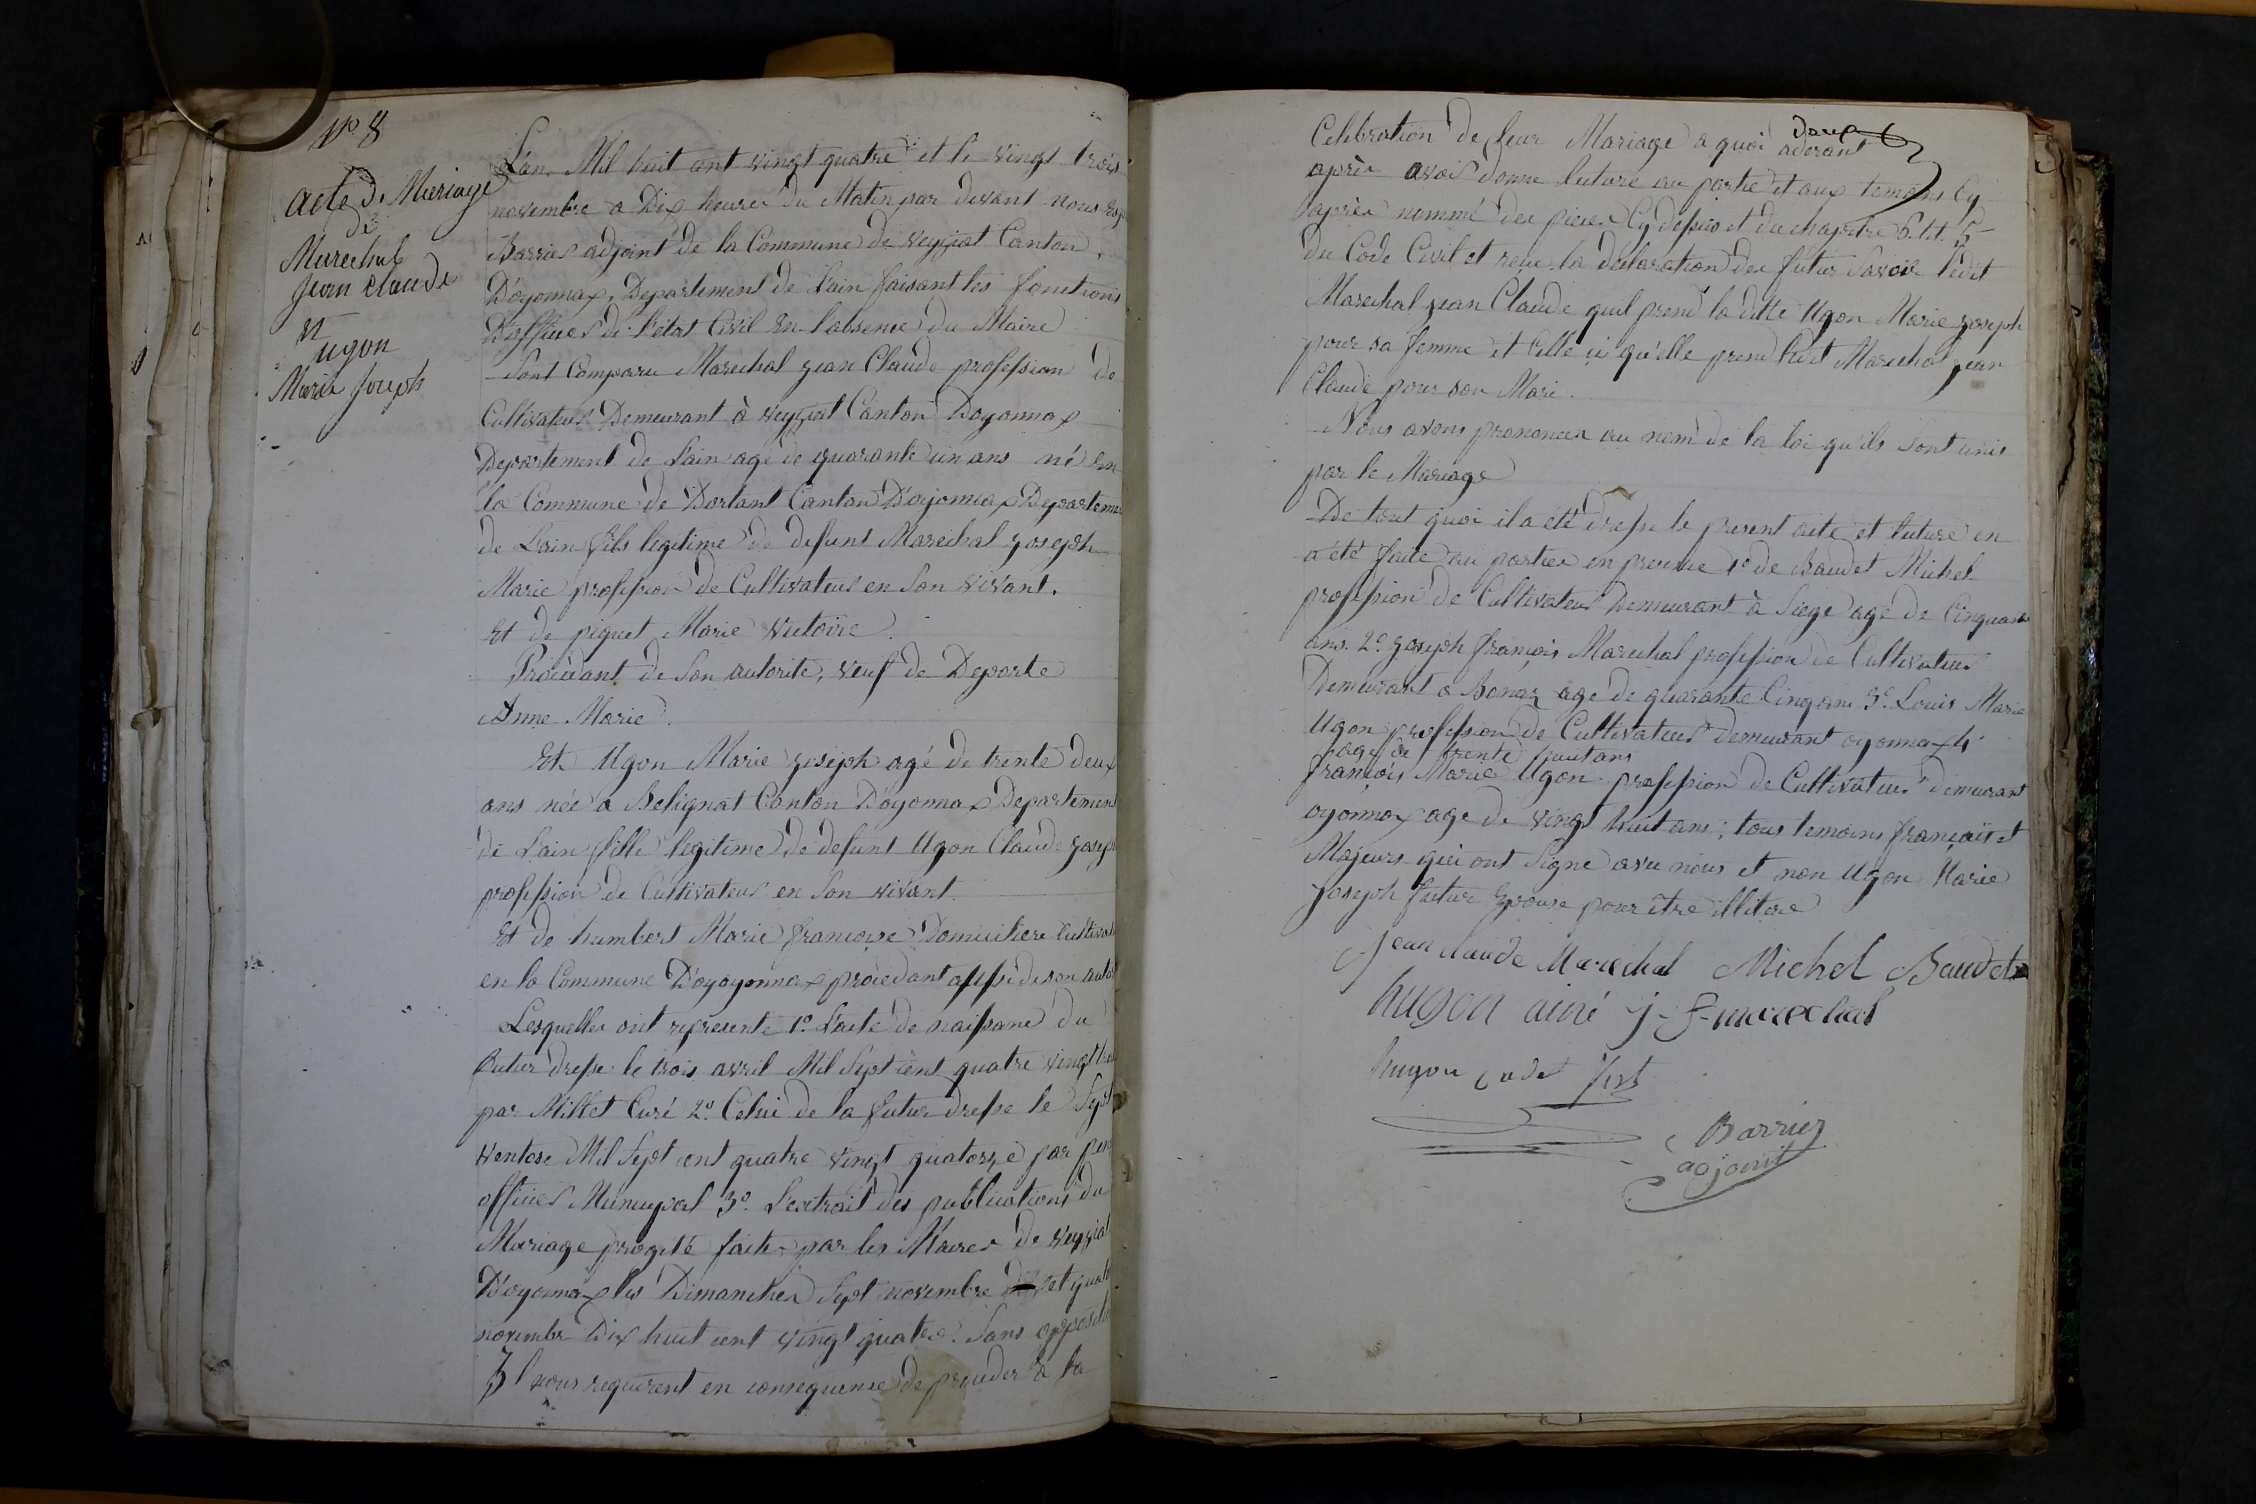 N° 8
Acte de Mariage
de
Marechal
Jean Claude
et
ugon
Marie Joseph
L'an Mil huit cent vingt quatre et le vingt trois
novembre a Dix heures du Matin par devant nous
Barrier adjoint de la Commune de Veyziat Canton
D'oyonnax, Departement de L'ain faisant les fonctions
D'officier de l'état Civil en l'absence du Maire
Sont Comparu Marechal jean Claude profession de
Cultivateur Demeurant à veyziat Canton Doyonnax
Departement de L'ain agé de quarante un ans né en
la Commune de Dortant Canton D'oyonnax Departeme
de L'ain fils legitime de defunt Marechal joseph
Marie profession de Cultivateur en Son vivant.
Et de piquet Marie Victoire
Procédant de Son autorité, veuf de Deporte
Anne Marie
Et Ugon Marie joseph agé de trente deux
ans née a Belignat Canton D'oyonnax Departement
de L'ain fille legitime de defunt Ugon Claude joseph
profession de Cultivateur en Son vivant.
Et de humbert Marie françoise Domiciliere Cultivat
en la Commune D'oyoyonnax procedant aussi de son auto
Lesquelles ont representé 1° L'acte de naissance du
Futur dressé le trois avril Mil Sept cent quatre vingt
par Millet Curé 2° Celui de la futur dressé le Sept
Ventose Mil Sept cent quatre vingt quatorze par
officier Municipal 3° L'extrait des publications du
Mariage progité faite par les Maires de Veyziat
D'oyonnax les Dimanches Sept novembre et quato
novembre Dix huit cent vingt quatre. Sans opposition
Il nous requerent en consequence de proceder a la
Celebration de leur Mariage a quoi aderant
après avoir donné lecture au partie et aux temoins Cy
après nommé des pieces Cy dessus et du chapitre 6. tit. 5
du Code Civil et reçu la declaration des futur Savoir ledit
Marechal jean Claude quil prend la ditte Ugon Marie joseph
pour sa femme et Celle ci qu'elle prend ledit Marechal jean
Claude pour son Mari.
Nous avons prononcer au nom de la loi qu'ils sont unis
par le Mariage
De tout quoi il a eté dresse le present acte et lecture en
a été faite au parties en presence 1° de Baudet Michel
profession de Cultivateur Demeurant à Siege agé de Cinquante
ans. 2° joseph françois Marechal profession de Cultivateur
Demeurant a Bonaz agé de quarante Cinq ans 3° Louis Marie
Ugon profession de Cultivateur demeurant oyonnax 4°
agé de trente huit ans
françois Marie Ugon profession de Cultivateur demeurant
oyonnax age de vingt huit ans; tous temoins français et
Majeurs qui ont Signé avec nous et non Ugon Marie
joseph futur Epouse pour être illitere
Jean claude Marechal Michel Baudet
hugon ainé j. f. marechal
hugon cadet
Barrier
adjoint